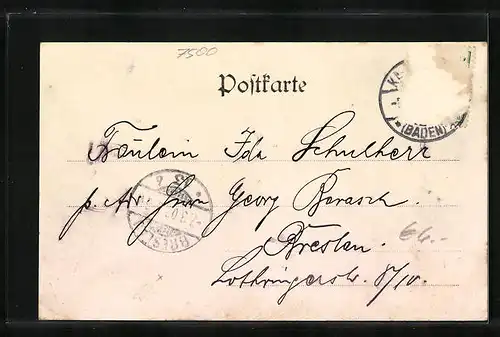 7500
Postkarte
(BADEN)
Fräulein Ida Schulherr
p. Adr. Herrn Georg Barasch.
Breslau.
66.-
Lothringerstr. 8/IV.
BRESL